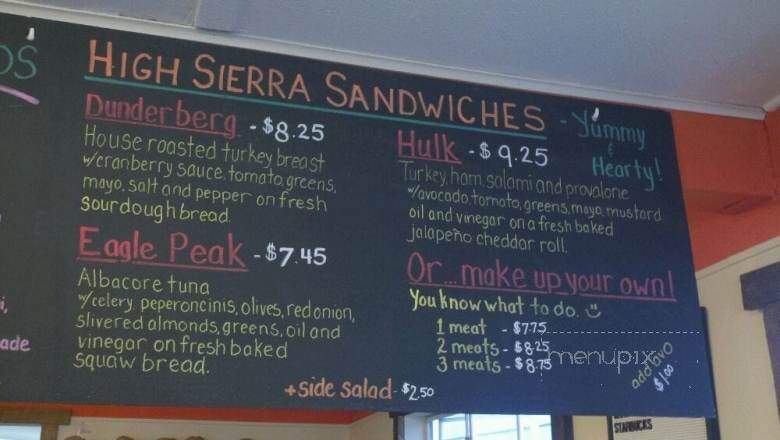 OS
HIGH SIERRA SANDWICHES
- Yummy
&
Hearty!
Dunderberg - $8.25
House roasted turkey breast
w/cranberry sauce, tomato, greens,
mayo, salt and pepper on fresh
sourdough bread.
Eagle Peak - $7.45
Albacore tuna
w/celery, peperoncinis, olives, red onion,
slivered almonds, greens, oil and
vinegar on fresh baked
squaw bread.
Hulk - $9.25
Turkey, ham, salami and provalone
w/avocado, tomato, greens, mayo, mustard
oil and vinegar on a fresh baked
jalapeño cheddar roll.
Or... make up your own!
You know what to do.
1 meat - $7.75
2 meats - $8.25
3 meats - $8.75
add avo
$1.00
+side salad - $2.50
i,
ade
menupix
STARBUCKS